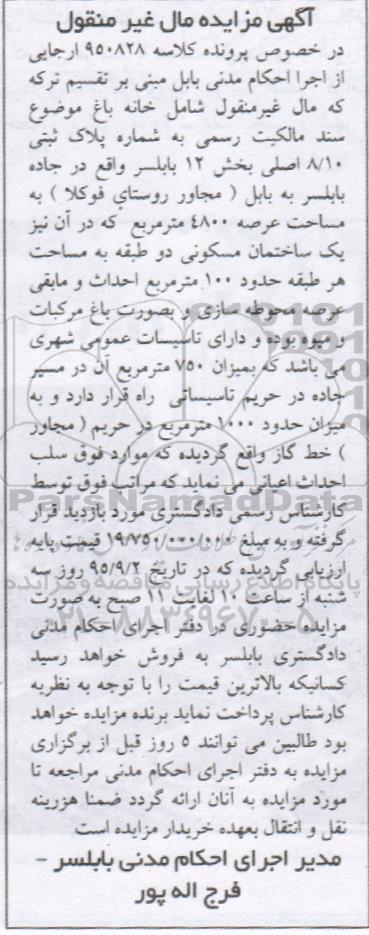 آگهی مزایده مال غیر منقول
در خصوص پرونده کلاسه ۹۵۰۸۲۸ ارجایی
از اجرا احکام مدنی بابل مبنی بر تقسیم ترکه
که مال غیرمنقول شامل خانه باغ موضوع
سند مالکیت رسمی به شماره پلاک ثبتی
۸/۱۰ اصلی بخش ۱۲ بابلسر واقع در جاده
بابلسر به بابل ( مجاور روستای فوکلا ) به
مساحت عرصه ۴۸۰۰ مترمربع که در آن نیز
یک ساختمان مسکونی دو طبقه به مساحت
هر طبقه حدود ۱۰۰ مترمربع احداث و مابقی
عرصه محوطه سازی و بصورت باغ مرکبات
و میوه بوده و دارای تاسیسات عمومی شهری
می باشد که بمیزان ۷۵۰ مترمربع آن در مسیر
جاده در حریم تاسیساتی راه قرار دارد و به
میزان حدود ۱۰۰۰ مترمربع در حریم ( مجاور
) خط گاز واقع گردیده که موارد فوق سلب
احداث اعیانی می نماید که مراتب فوق توسط
کارشناس رسمی دادگستری مورد بازدید قرار
گرفته و به مبلغ ۱۹/۷۵۰/۰۰۰/۰۰۰ قیمت پایه
ارزیابی گردیده که در تاریخ ۹۵/۹/۲ روز سه
شنبه از ساعت ۱۰ لغایت ۱۱ صبح به صورت
مزایده حضوری در دفتر اجرای احکام مدنی
دادگستری بابلسر به فروش خواهد رسید
کسانیکه بالاترین قیمت را با توجه به نظریه
کارشناس پرداخت نماید برنده مزایده خواهد
بود طالبین می توانند ۵ روز قبل از برگزاری
مزایده به دفتر اجرای احکام مدنی مراجعه تا
مورد مزایده به آنان ارائه گردد ضمنا هزرینه
نقل و انتقال بعهده خریدار مزایده است
مدیر اجرای احکام مدنی بابلسر –
فرج اله پور
ParsNamadData
پایگاه اطلاع رسانی مناقصه و مزایده
۰۲۱-۸۸۳۴۹۶۷۰-۵